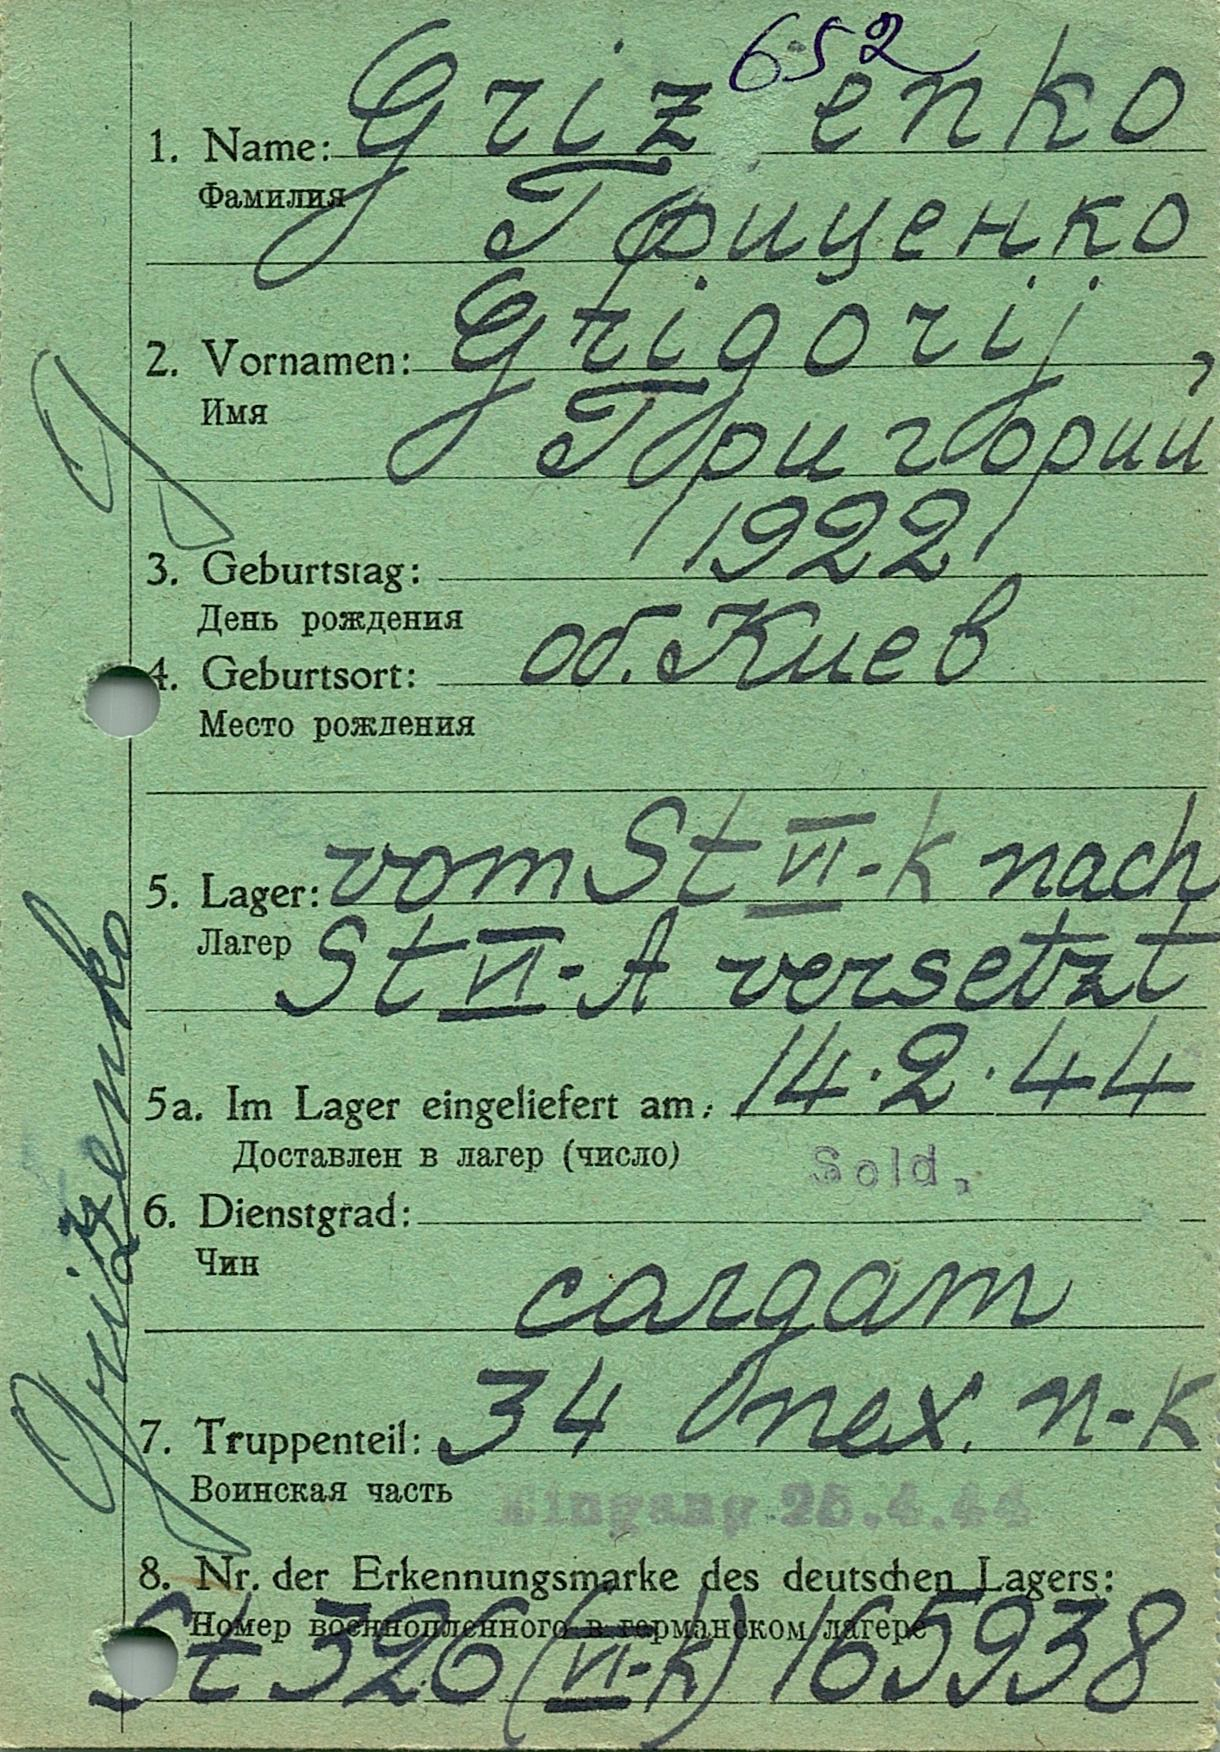 652
1. Name: Griz enko
Фамилия
Гриценко
2. Vornamen: Grigorij,
Имя
Григорий
3. Geburtstag: 1922
День рождения
4. Geburtsort: об. Киев
Место рождения
5. Lager: vom St VI-K nach
Лагер St VI-A versetzt
5a. Im Lager eingeliefert am: 14.2.44
Доставлен в лагер (число)
Sold.
6. Dienstgrad:
Чин
солдат
7. Truppenteil: 34 мех. п-к
Воинская часть
Eingang 25.4.44
8. Nr. der Erkennungsmarke des deutschen Lagers:
Номер военнопленного в германском лагере
St 326 (VI-K) 165938
G
Grizenko